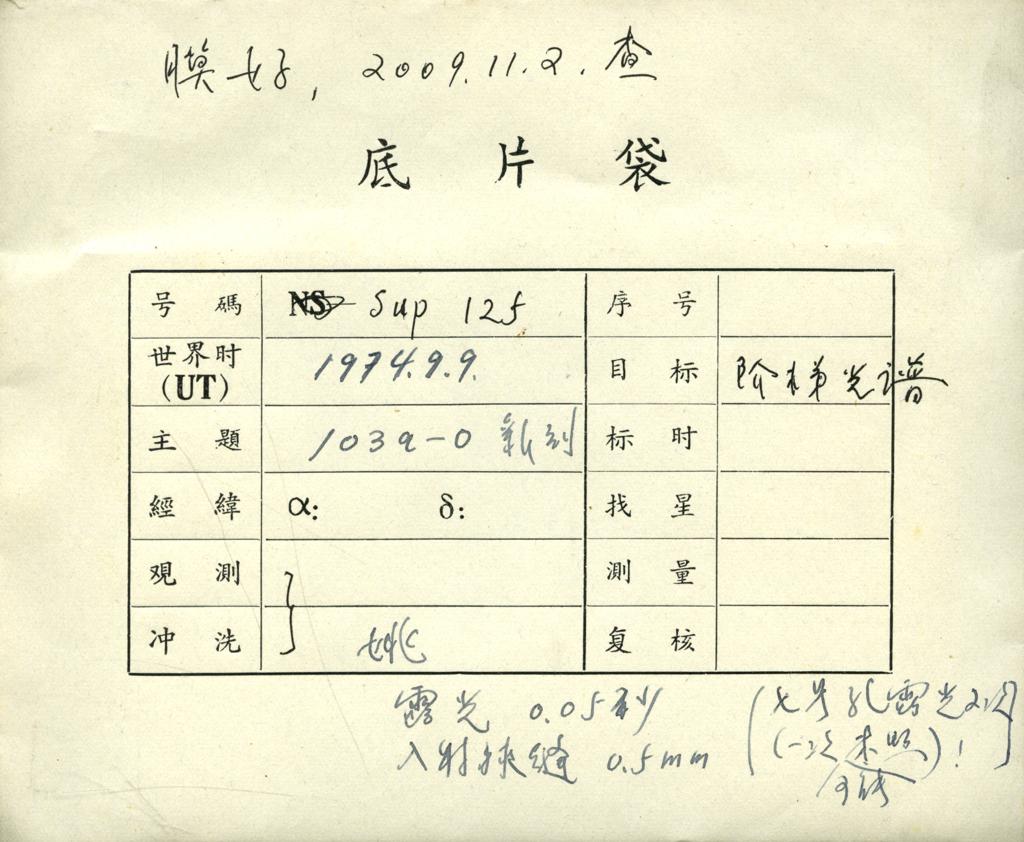 膜好, 2009.11.2.查
底片袋
号碼 NS Sup 125 序号
世界时(UT) 1974.9.9. 目标 阶梯光谱
主題 103a-O 新到 标时
經緯 α: δ: 找星
观測 測量
冲洗 姚 复核
露光 0.05秒 (七号孔露光2次
入射狭缝 0.5mm (一次未照)!
可能